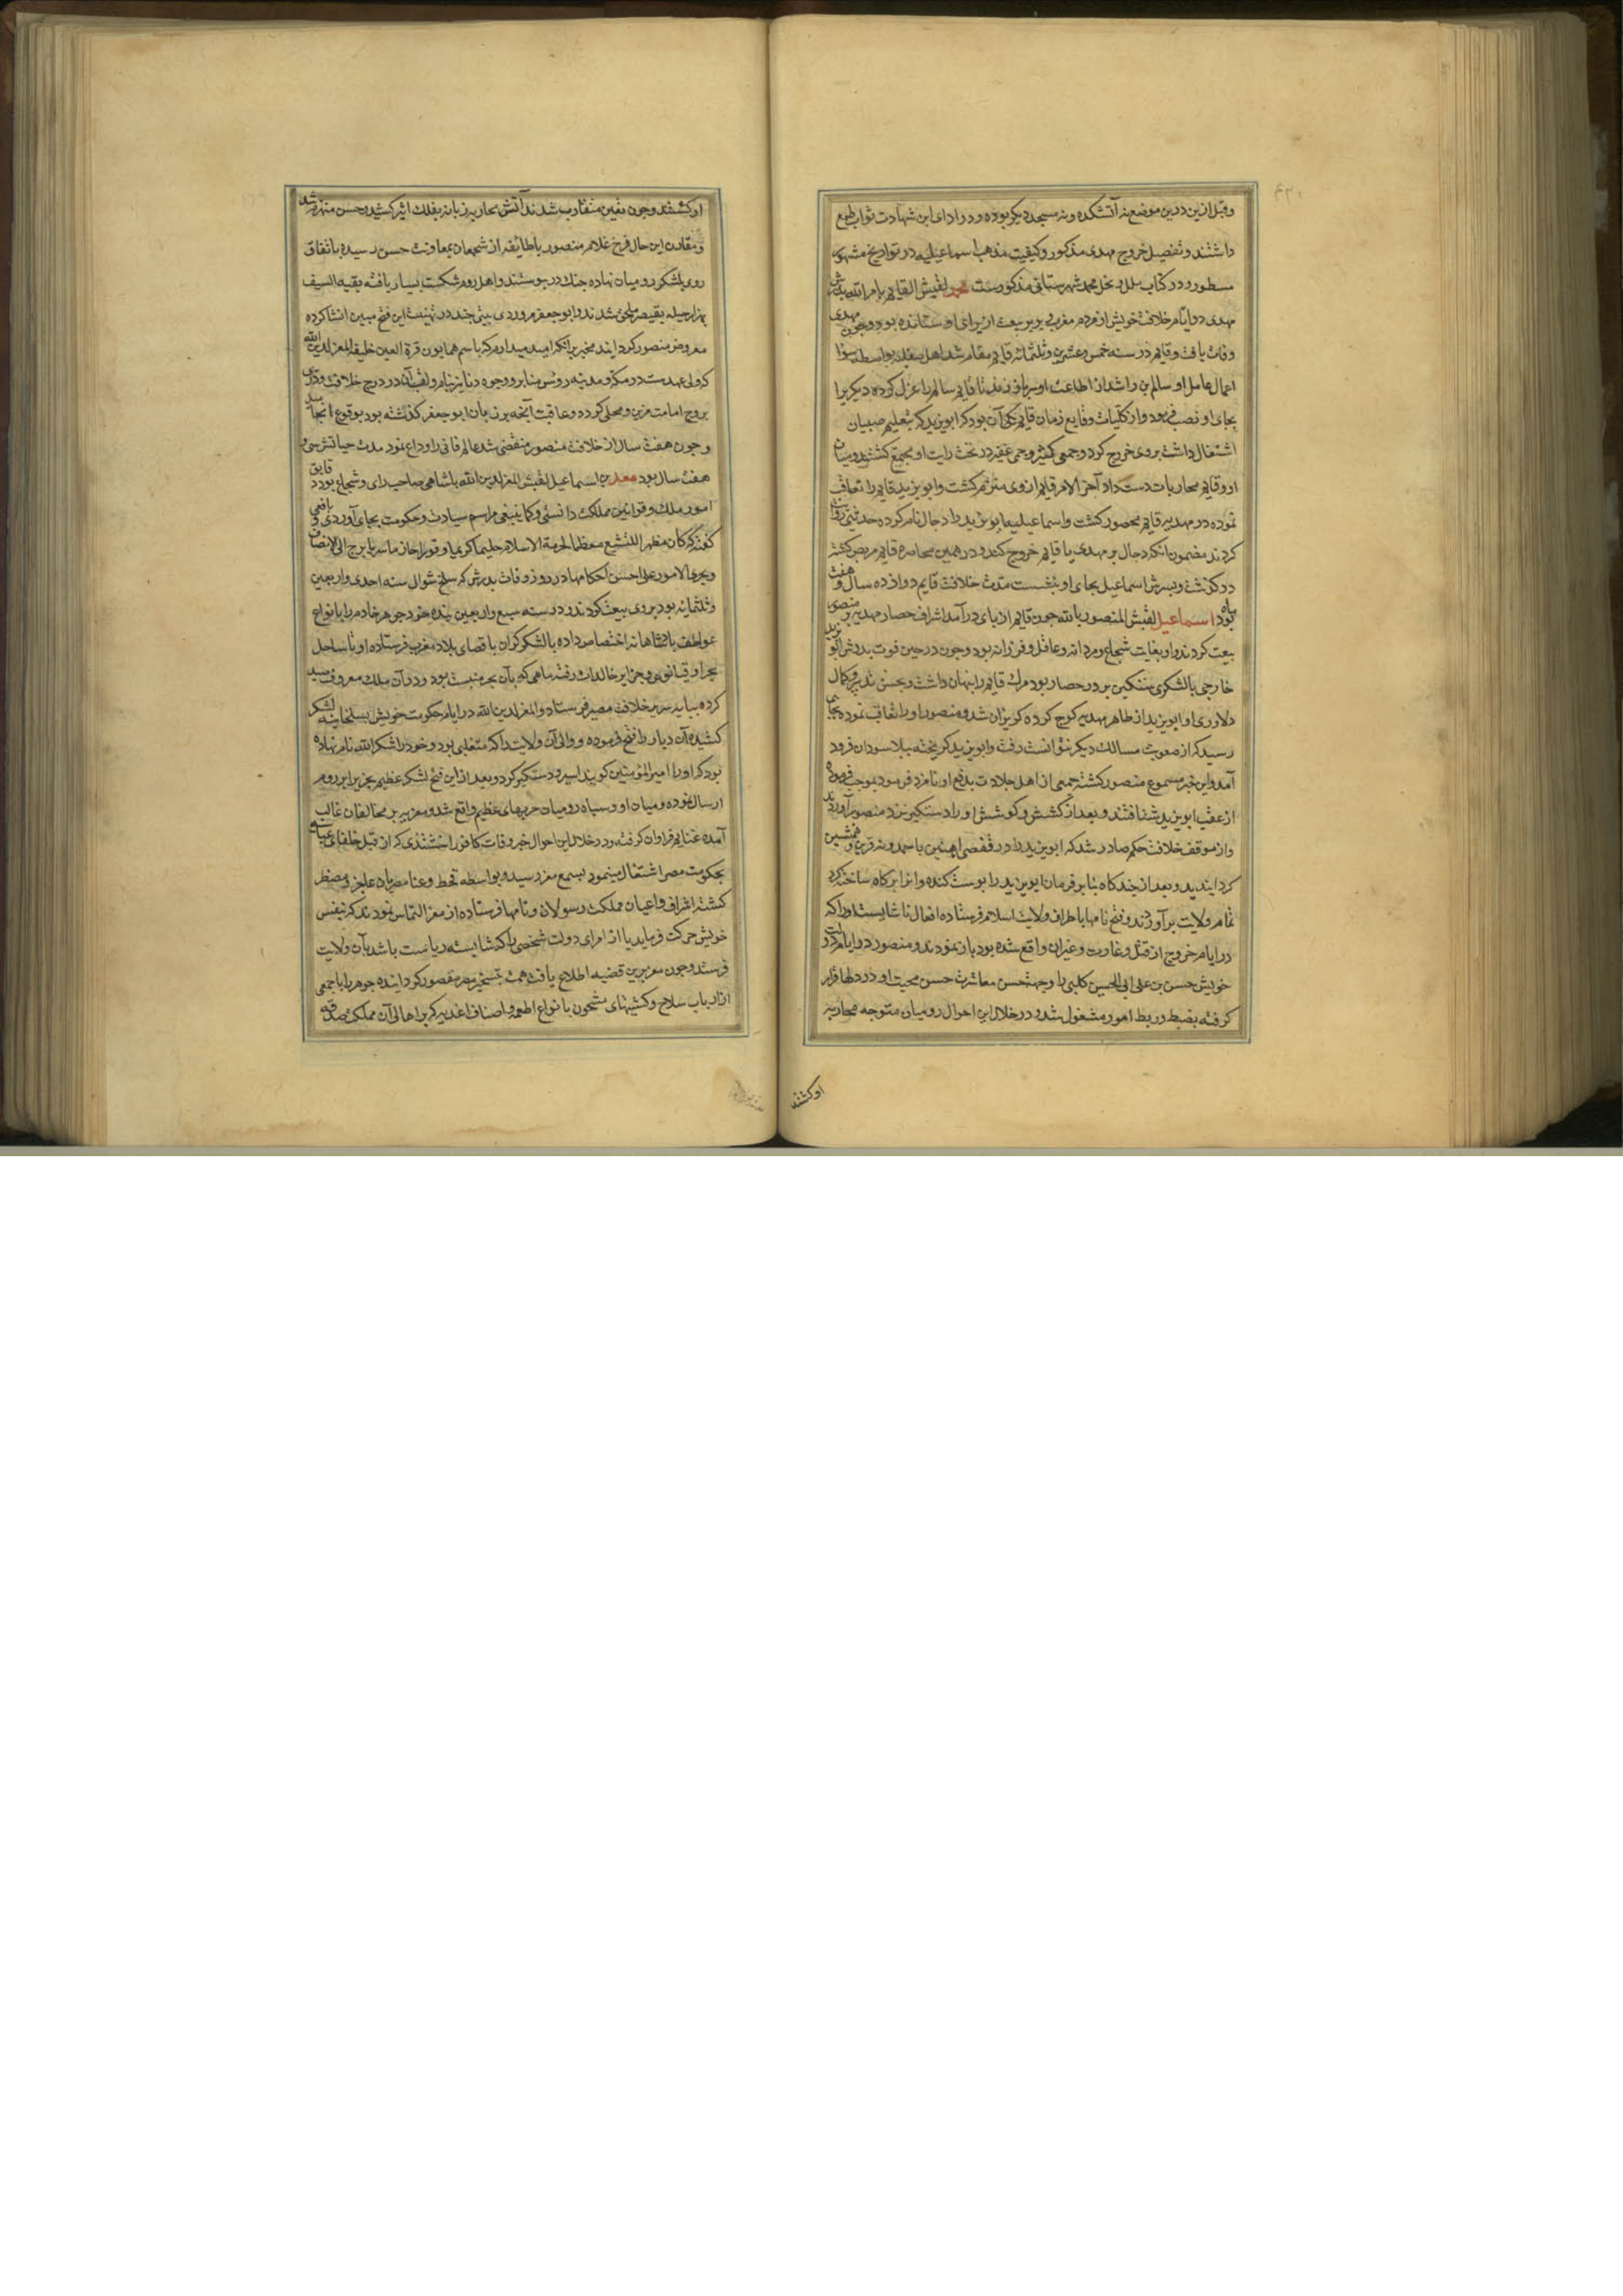 وقبل ازین درین موضع نه آتشکده و نه مسجد دیگر بوده و در ادای این شهادت ثواب طمع
داشتند و تفصیل خروج مهدی مذکور و کیفیت مذهب اسماعیلیه در تواریخ مشهوره
مسطور و در کتاب ملل و نحل محمد شهرستانی مذکورست محمد لقبش القایم بامر الله پدرش
مهدی در ایام خلافت خویش از مردم مغربی بربر بیعت از برای او ستانده بود و چون مهدی
وفات یافت و قایم در سنه خمس و عشرین و ثلثمائه قایم مقام شد اهل صقلیه بواسطه سوء
اعمال عامل او سالم بن راشد از اطاعت او سر باز زدند تا قایم سالم را عزل کرده دیگریرا
بجای او نصب فرمود و از کلیات وقایع زمان قایم یکی آن بود که ابو یزید که بتعلیم صبیان
اشتغال داشت بر وی خروج کرد و جمعی کثیر و جمی غفیر در تحت رایت او مجتمع کشتند و میان
او و قایم محاربات دست داد آخر الامر قایم از وی منهزم کشت و ابو یزید قایم را تعاقب
نموده در مهدیه قایم محصور کشت و اسماعیلیه ابو یزید را دجال نام کرده حدیثی روایت
کردند مضمون انکه دجال بر مهدی یا قایم خروج کند و در همین محاصره قایم مریض کشته
درکذشت و پسرش اسماعیل بجای او بنشست مدت خلافت قایم دوازده سال و هفت
ماه بود اسماعیل لقبش المنصور بالله چون قایم از پای درآمد اشراف حصار مهدیه بر منصور
بیعت کردند و او بغایت شجاع و مردانه و عاقل و فرزانه بود و چون در حین فوت پدرش ابو یزید
خارجی با لشکری سنکین بر در حصار بود مرک قایم را پنهان داشت و بحسن تدبیر و کمال
دلاوری او ابو یزید از ظاهر مهدیه کوچ کرده کریزان شد و منصور او را تعاقب نمود بجایی
رسید که از صعوبت مسالک دیکر نتوانست رفت و ابو یزید کریخته ببلاد سودان فرود
آمد و این خبر مسموع منصور کشته جمعی از اهل جلادت بدفع او نامزد فرمود بموجب فرموده
از عقب ابو یزید شتافتند و بعد از کشش و کوشش او را دستکیر نزد منصور آوردند
و از موقف خلافت حکم صادر شد که ابو یزید را در قفصی آهنین با حمدونه قرین و همنشین
کردانیدند و بعد از چند کاه بنا بر فرمان ابو یزید را پوست کنده و انرا پر کاه ساخته کرد
تمام ولایت برآوردند و فتح نامها باطراف ولایت اسلام فرستاده افعال ناشایست او را که
در ایام خروج از قتل و غارت و غیر ان واقع شده بود باز نمودند و منصور در ایام دولت
خویش حسن بن علی ابی الحسین کلبی را وجهة حسن معاشرت حسن محبت او در دلها قرار
کرفته بضبط و ربط امور مشغول شد و در خلال این احوال رومیان متوجه محاربه
اوکشتند
او کشتند و چون فئتین متقارب شدند آتش محاربه زبانه بفلک اثیر کشید و حسن منهزم شد
و مقارن این حال فرخ غلام منصور با طائفه از شجعان بمعاونت حسن رسیده باتفاق
روی بلشکر رومیان نهاده جنک در پیوستند و اهل روم شکست بسیار یافته بقیه السیف
بهزار حیله بقیصر ملحق شدند و ابو جعفر مروردی بیتی چند در تهنیت این فتح مبین انشا کرده
معروض منصور کردانید مخبر بر آنکه امید میدارم که باسم همایون قرة العین خلیفه المعز لدین الله
که ولی عهدست در مکه و مدینه رؤس منابر و وجوه دنانیر بنام و لقب آن در درج خلافت و دری
بروج امامت مزین و محلی کردد و عاقبت آنچه بر زبان ابو جعفر کذشته بود بوقوع انجامید
و چون هفت سال از خلافت منصور منقضی شد عالم فانی را وداع نمود مدت حیاتش سی و
هفت سال بود معد بن اسماعیل لقبش المعز لدین الله پادشاهی صاحب رای و شجاع بود دقایق
امور ملک و قوانین مملکت دانستی و کما ینبغی مراسم سیادت و حکومت بجای آوردی و یافعی
کفته که کان مظهرا للتشیع معظما لحرمة الاسلام حلیما کریما وقورا حازما سریا یرجع الی الانصاف
و یجری الامور علی احسن احکامها در روز وفات پدرش که سلخ شوال سنه احدی و اربعین
و ثلثمائه بود بر وی بیعت کردند و در سنه سبع و اربعین بنده خود جوهر خادم را بانواع
عواطف پادشاهانه اختصاص داده با لشکر کران باقصای بلاد مغرب فرستاد و او تا ساحل
بحر اوقیانوس و جزایر خالدات رفته ماهی که بآن بحر منسبت بود و در آن ملک معروف صید
کرده بپایه سریر خلافت مصیر فرستاد و المعز لدین الله در ایام حکومت خویش بسلجماسه لشکر
کشیده آن دیار را فتح فرموده و والی آن ولایت را که متغلبی بود و خود را شاکر الله نام نهاده
بود که او را امیر المؤمنین کویند اسیر و دستکیر کرد و بعد از این فتح لشکر عظیم بجزیرا بر روم
ارسال نموده و میان او و سپاه رومیان حربهای عظیم واقع شد و معزیه بر مخالفان غالب
آمده غنایم فراوان کرفته و در خلال این احوال خبر وفات کافور اخشیدی که از قبل خلفای عباسی
بحکومت مصر اشتغال مینمود بسمع معز رسید و بواسطه قحط و غلا مصریان عاجز و مضطر
کشته اشراف و اعیان مملکت رسولان و نامها فرستاده از معز التماس نمودند که بنفس
خویش حرکت فرماید یا از امرای دولت شخصی را که شایسته ریاست باشد بآن ولایت
فرستد و چون معز برین قضیه اطلاع یافت همت بتسخیر مصر مقصور کردانیده جوهر را با جمعی
از ارباب سلاح و کشتیهای مشحون بانواع اطعمه و اصناف اغذیه که بر اهالی آن مملکت صدقه